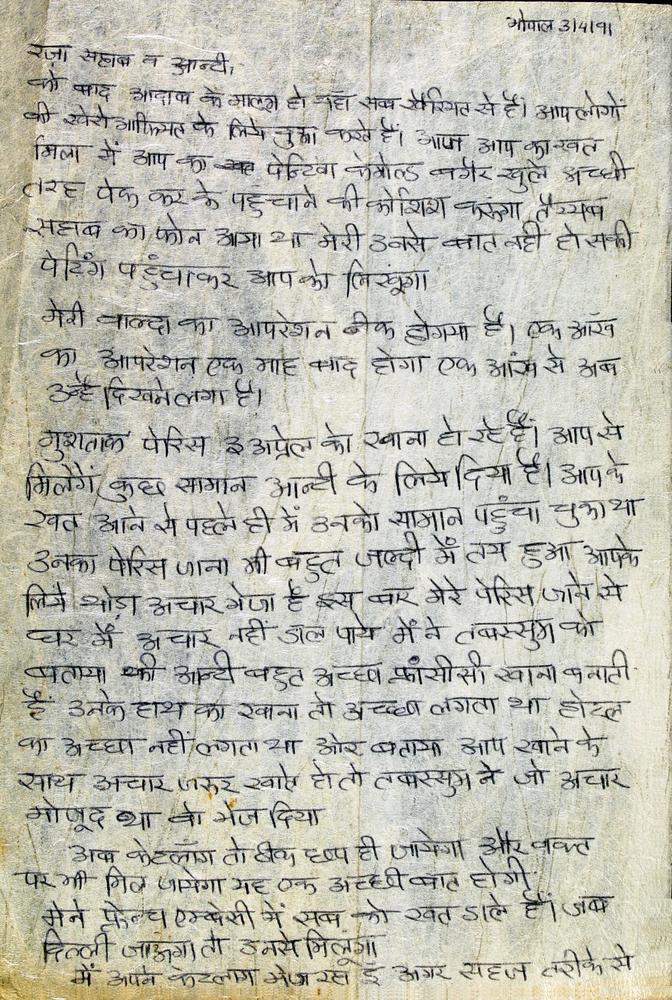 भोपाल 3/4/91
रज़ा सहाब व आन्टी,
को बाद आदाब के मालुम हो यहाँ सब खैरियत से है। आप लोगों
की खेरो आफियत के लिये दुआ करते है। आज आप का खत
मिला में आप का पेन्टिग केमोल्ड बगैर खुले अच्छी
तरह पेक कर के पहुचाने की कोशिश करूगा तैय्यब
सहाब का फोन आया था मेरी उनसे बात नही हो सकी
पेटिंग पहुंचाकर आप को लिखूंगा
मेरी वाल्दा का आपरेशन ठीक होगया है। एक आँख
का आपरेशन एक माह बाद होगा एक आंख से अब
उन्हें दिखने लगा है।
मुशताक पेरिस 3 अप्रेल को रवाना हो रहे हैं। आप से
मिलेगें कुछ सामान आन्टी के लिये दिया है। आपके
खत आने से पहले ही में उनको सामान पहुंचा चुका था
उनका पेरिस जाना भी बहुत जल्दी में तय हुआ आपके
लिये थोड़ा अचार भेजा है इस बार मेरे पेरिस जाने से
घर में अचार नहीं डाल पाये में ने तबस्सुम को
बताया की आन्टी बहुत अच्छा फ्रांसीसी खाना बनाती
हैं उनके हाथ का खाना तो अच्छा लगता था होटल
का अच्छा नहीं लगता था और बताया आप खाने के
साथ अचार जरूर खाते हो तो तबस्सुम ने जो अचार
मोजूद था वो भेज दिया
अब केटलॉग तो ठीक छप ही जायेगा और वक्त
पर भी मिल जायेगा यह एक अच्छी बात होगी
मेने फ्रेन्च एम्बेसी में सब को खत डाले है। जब
दिल्ली जाऊगा तो उनसे मिलूंगा
में अपने केटलाग भेज रहा हूँ अगर सहज तरीके से